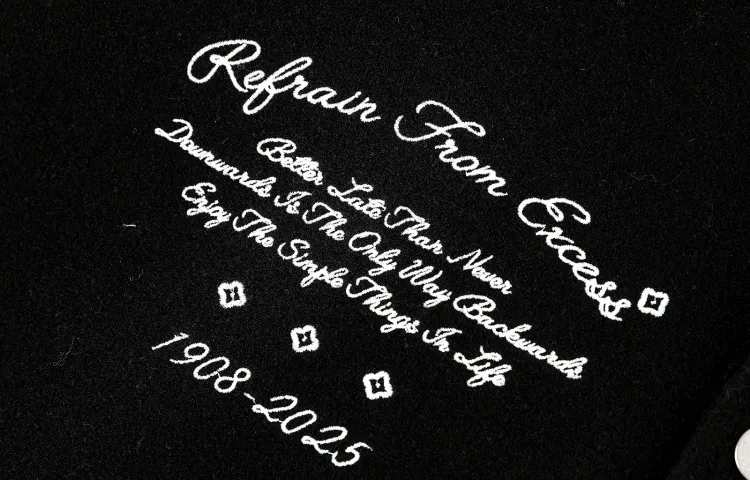 Refrain From Excess
Better Late Than Never
Downwards Is The Only Way Backwards
Enjoy The Simple Things In Life
1908-2025